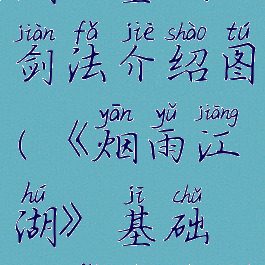 jiàn fǎ jiè shào tú
剑法介绍图
yān yǔ jiāng
(《烟雨江
hú jī chǔ
湖》 基础